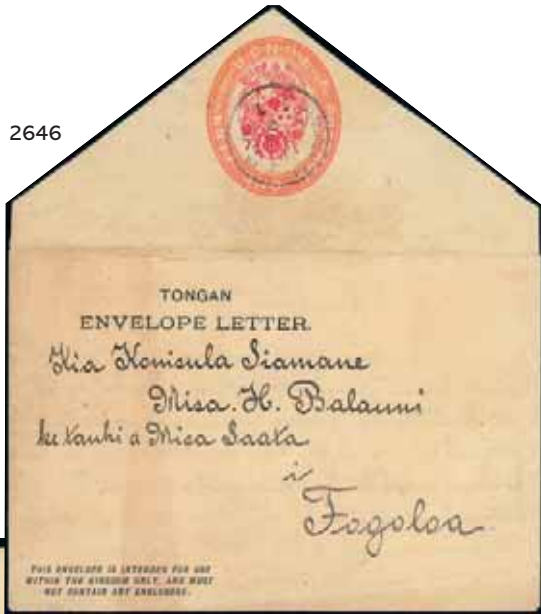 2646
TONGAN
ENVELOPE LETTER.
Kia Konisula Siamane
Misa. H. Balauni
ke tauhi a Misa Saata
i
Fogoloa
THIS ENVELOPE IS INTENDED FOR USE
WITHIN THE KINGDOM ONLY, AND MUST
NOT CONTAIN ANY ENCLOSURE.